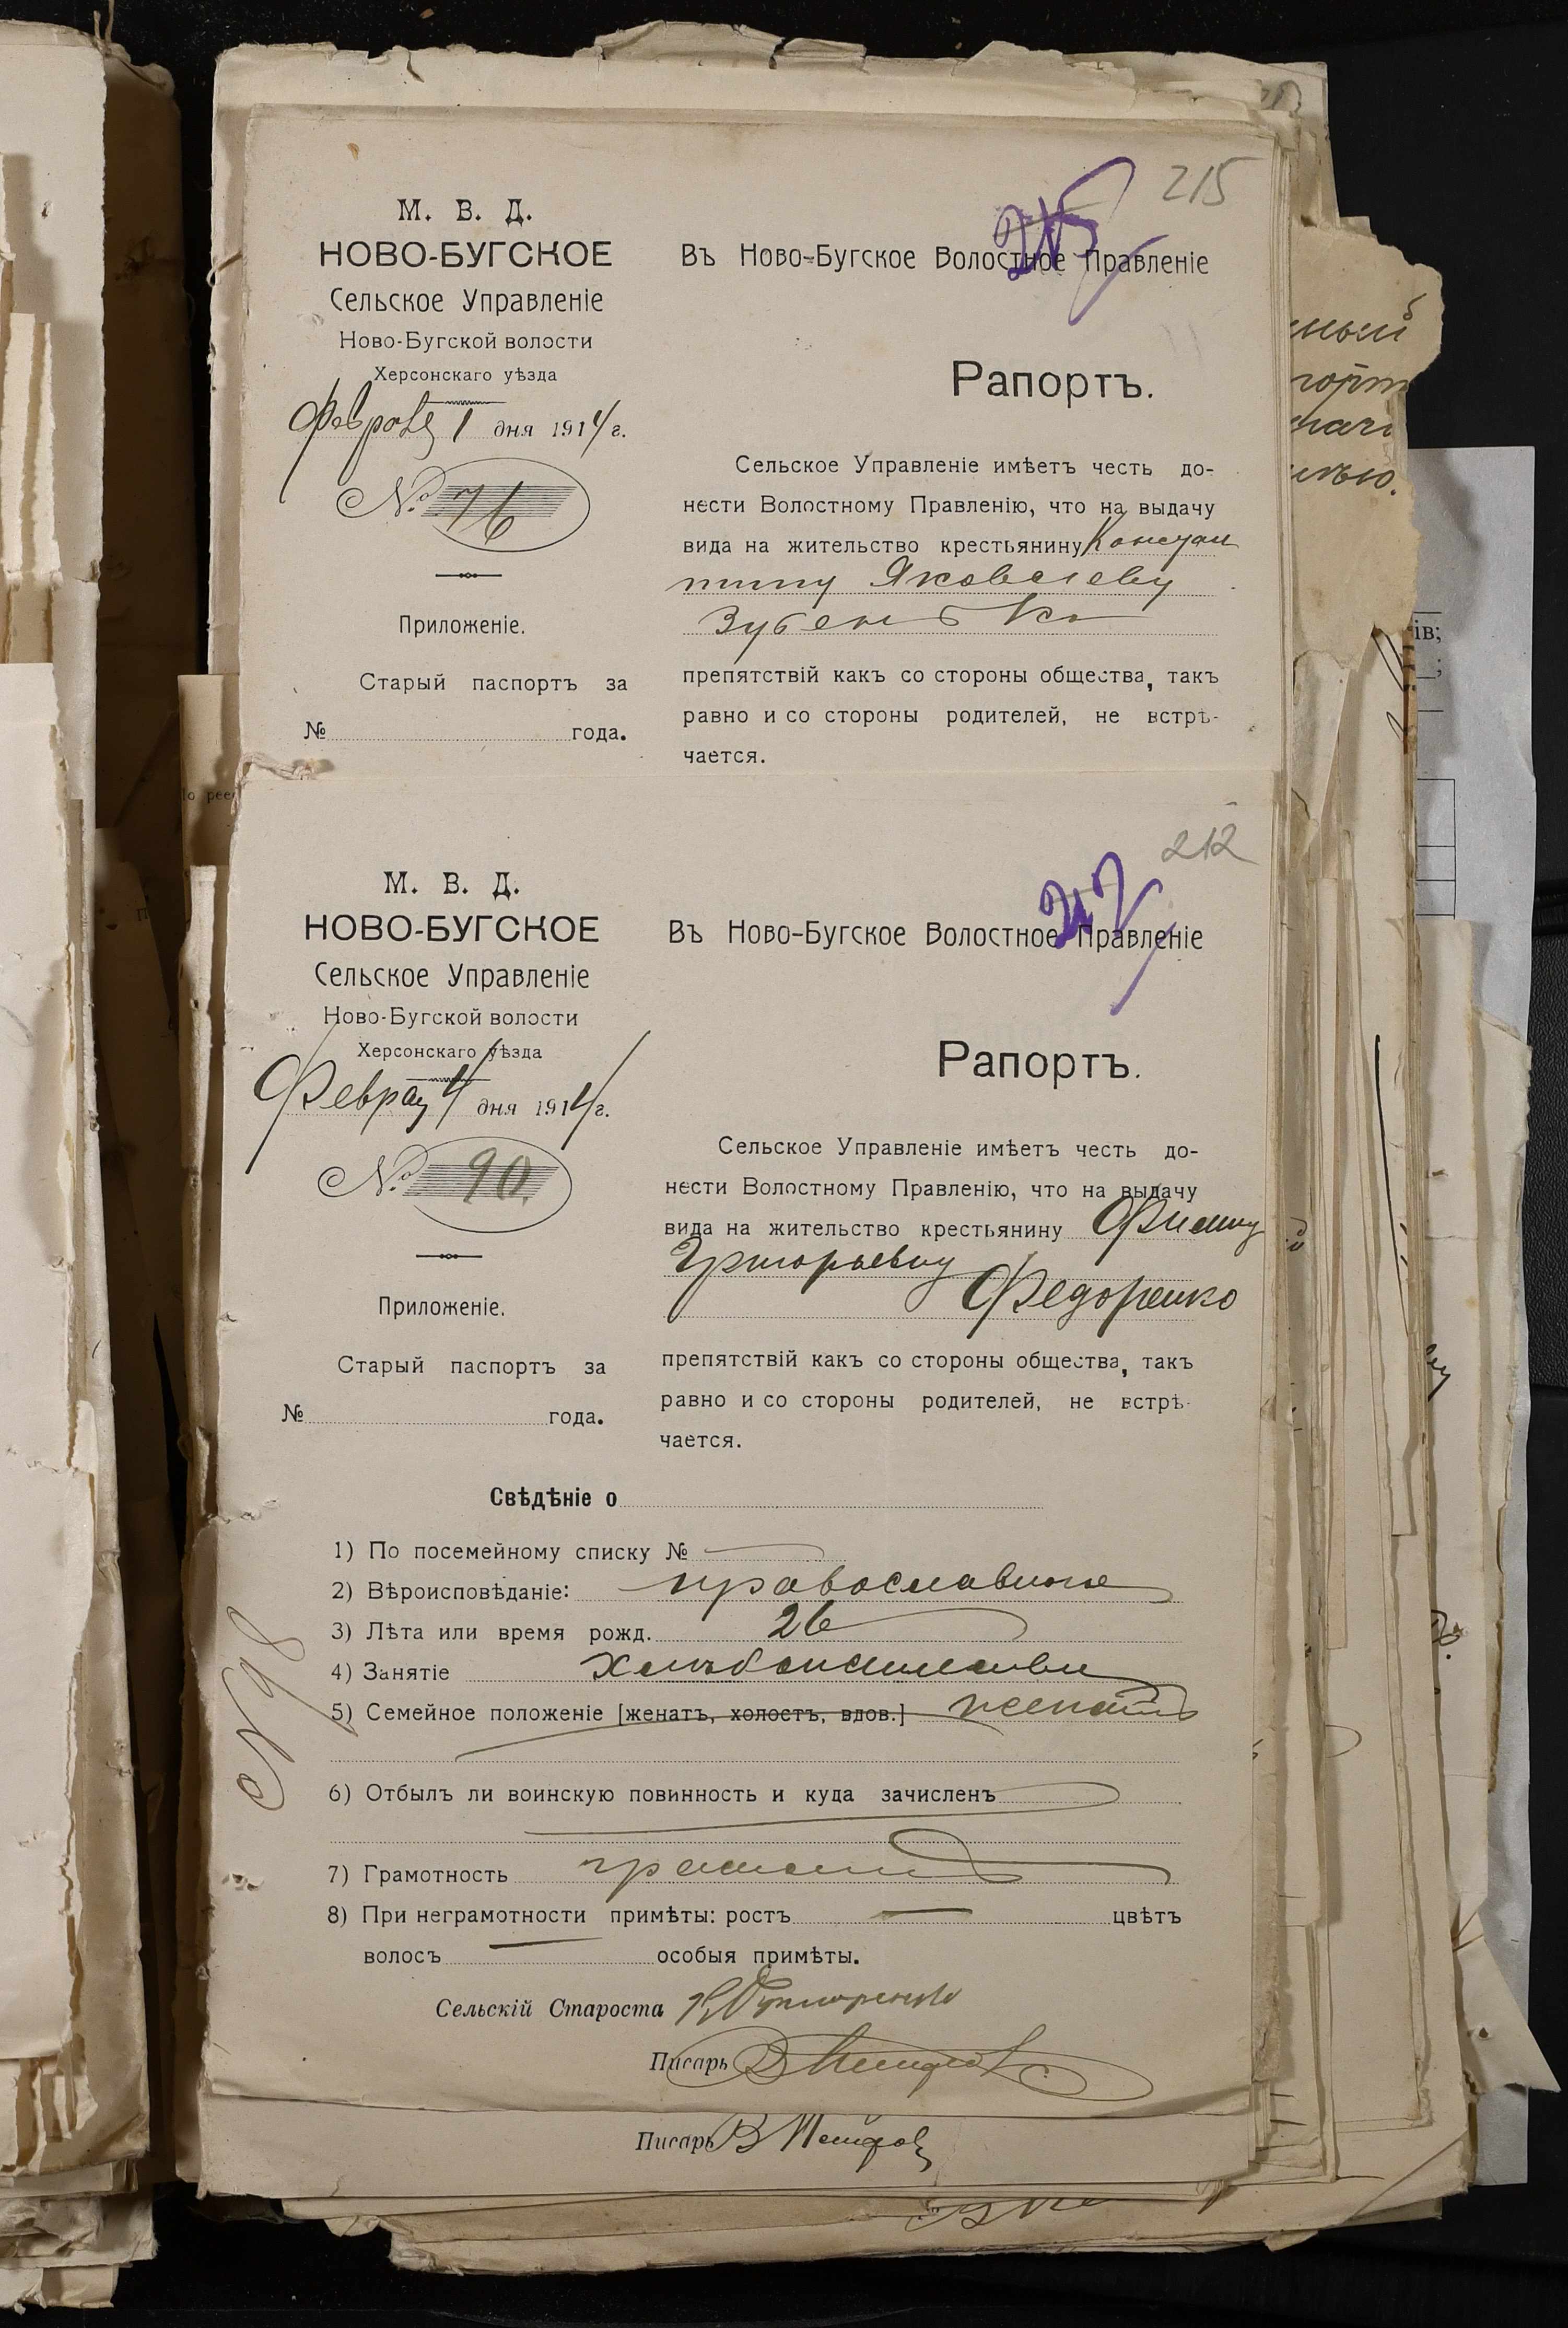 215
215
М. В. Д.
НОВО-БУГСКОЕ
Сельское Управленіе
Ново-Бугской волости
Херсонскаго уѣзда
1 дня 1914 г.
№ 76
Приложеніе.
Старый паспортъ за
№ года.
Въ Ново-Бугское Волостное Правленіе
Рапортъ.
Сельское Управленіе имѣетъ честь до-
нести Волостному Правленію, что на выдачу
вида на жительство крестьянину Констан
тину Яковлеву
Зубенько
препятствій какъ со стороны общества, такъ
равно и со стороны родителей, не встрѣ-
чается.
212
212
М. В. Д.
НОВО-БУГСКОЕ
Сельское Управленіе
Ново-Бугской волости
Херсонскаго уѣзда
4 дня 1914 г.
№ 90.
Приложеніе.
Старый паспортъ за
№ года.
Въ Ново-Бугское Волостное Правленіе
Рапортъ.
Сельское Управленіе имѣетъ честь до-
нести Волостному Правленію, что на выдачу
вида на жительство крестьянину
Григорьевну
Федоренко
препятствій какъ со стороны общества, такъ
равно и со стороны родителей, не встрѣ-
чается.
Свѣдѣніе о
1) По посемейному списку №
2) Вѣроисповѣданіе: православное
3) Лѣта или время рожд. 26
4) Занятіе
5) Семейное положеніе [женатъ, холостъ, вдов.] женатъ
6) Отбылъ ли воинскую повинность и куда зачисленъ
7) Грамотность
8) При неграмотности примѣты: ростъ цвѣтъ
волосъ особыя примѣты.
Сельскій Староста
Писарь
Писарь
N 98